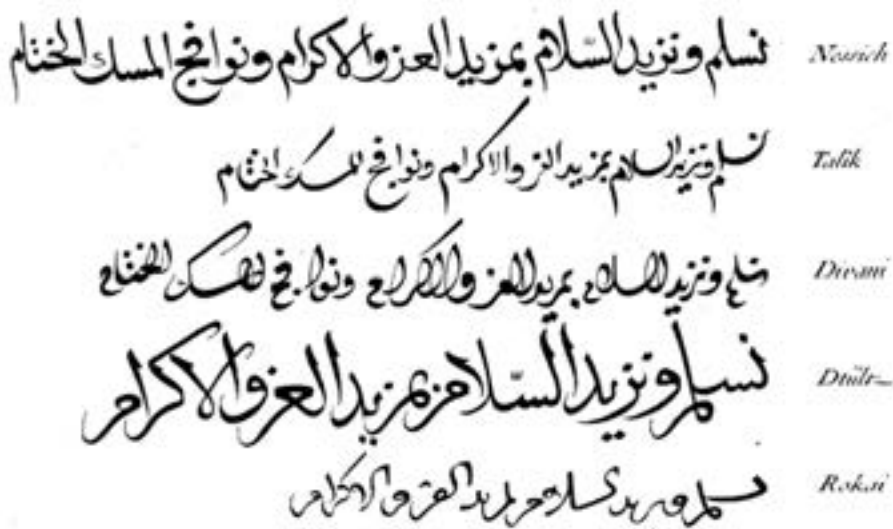 نسلم ونزيد السّلام بمزيد العز والاكرام ونوافج المسك الختام Nessich
نسلم ونزيد السلام بمزيد العز والاكرام ونوافج المسك الختام Talik
نسلم ونزيد السلام بمزيد العز والاكرام ونوافج المسك الختام Divani
نسلم ونزيد السّلام بمزيد العز والاكرام
نسلم ونزيد السلام بمزيد العز والاكرام Rokai